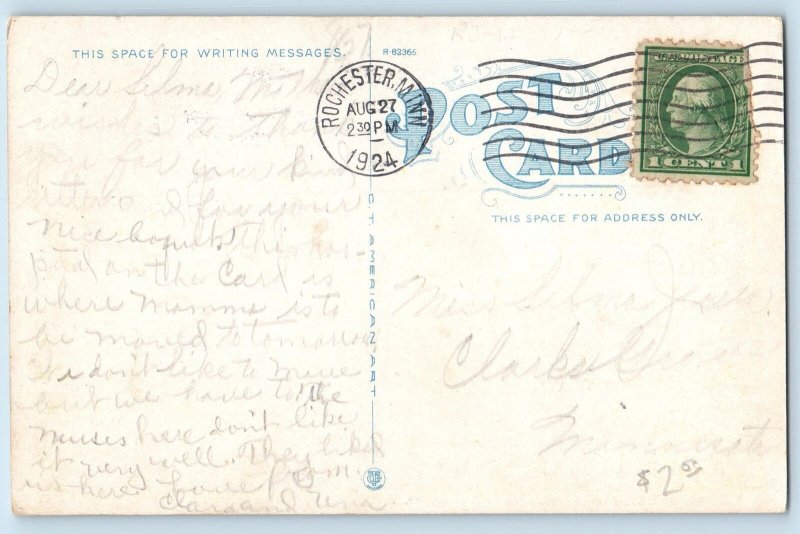 THIS SPACE FOR WRITING MESSAGES.
R-82365
POST CARD
THIS SPACE FOR ADDRESS ONLY.
ROCHESTER, MINN.
AUG 27
2 30 PM
1924
U.S. POSTAGE
1 CENT 1
C.T. AMERICAN ART
Dear Selma
is to thank
you for your kind
letter and for your
nice boquet. This hos-
pital on the Card is
where Mamma is to
be moved to tomorrow
I don't like to move
but we have to the
nurses here don't like
it very well. They liked
us here. Love from
Clara and Una
Miss Selma
Clarks Grove
Minnesota
$2.00